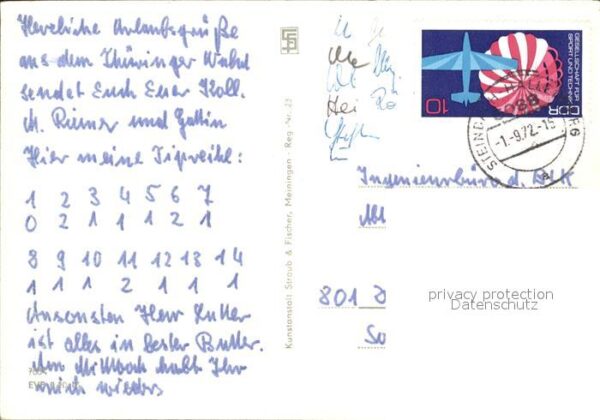 Herzliche Urlaubsgrüße
aus dem Thüringer Wald
sendet Euch Euer Koll.
M. Riemer und Gattin
Hier meine Tipreihe:
1 2 3 4 5 6 7
0 2 1 1 1 2 1
8 9 10 11 12 13 14
1 1 1 2 1 1 1
Ansonsten Herr Kutter
ist alles in bester Butter.
Am Mittwoch habt Ihr
mich wieder
Kunstanstalt Straub & Fischer, Meiningen - Reg.-Nr. 23
GESELLSCHAFT FÜR
SPORT UND TECHNIK
DDR
10
-1.-9.72-15
Ingenieurbüro d. DLK
Abt
801 D
privacy protection
Datenschutz